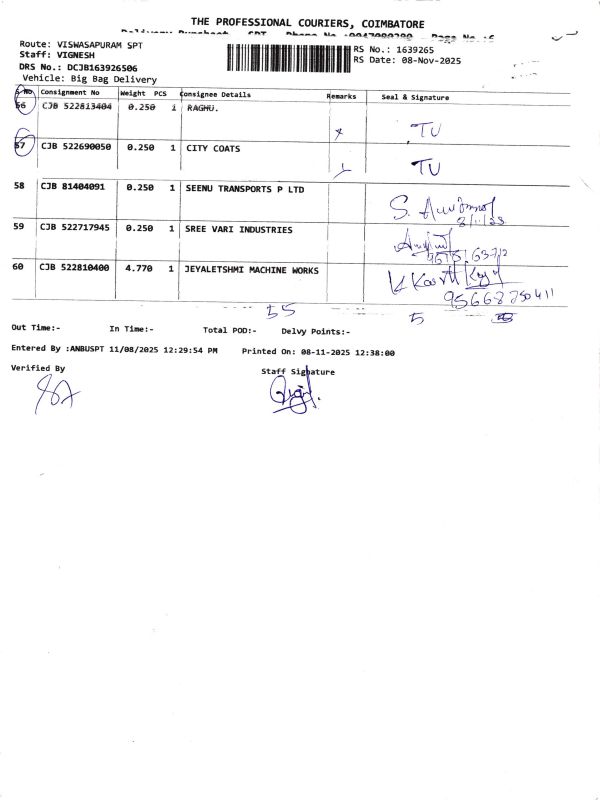 THE PROFESSIONAL COURIERS, COIMBATORE
Route: VISWASAPURAM SPT
Staff: VIGNESH
DRS No.: DCJB163926506
Vehicle: Big Bag Delivery
RS No.: 1639265
RS Date: 08-Nov-2025
S.No. Consignment No Weight PCS Consignee Details Remarks Seal & Signature
56 CJB 522813404 0.250 1 RAGHU. x TU
57 CJB 522690050 0.250 1 CITY COATS TU
58 CJB 81404091 0.250 1 SEENU TRANSPORTS P LTD
59 CJB 522717945 0.250 1 SREE VARI INDUSTRIES
60 CJB 522810400 4.770 1 JEYALETSHMI MACHINE WORKS
55 5
Out Time:- In Time:- Total POD:- Delvy Points:-
Entered By :ANBUSPT 11/08/2025 12:29:54 PM Printed On: 08-11-2025 12:38:00
Verified By Staff Signature